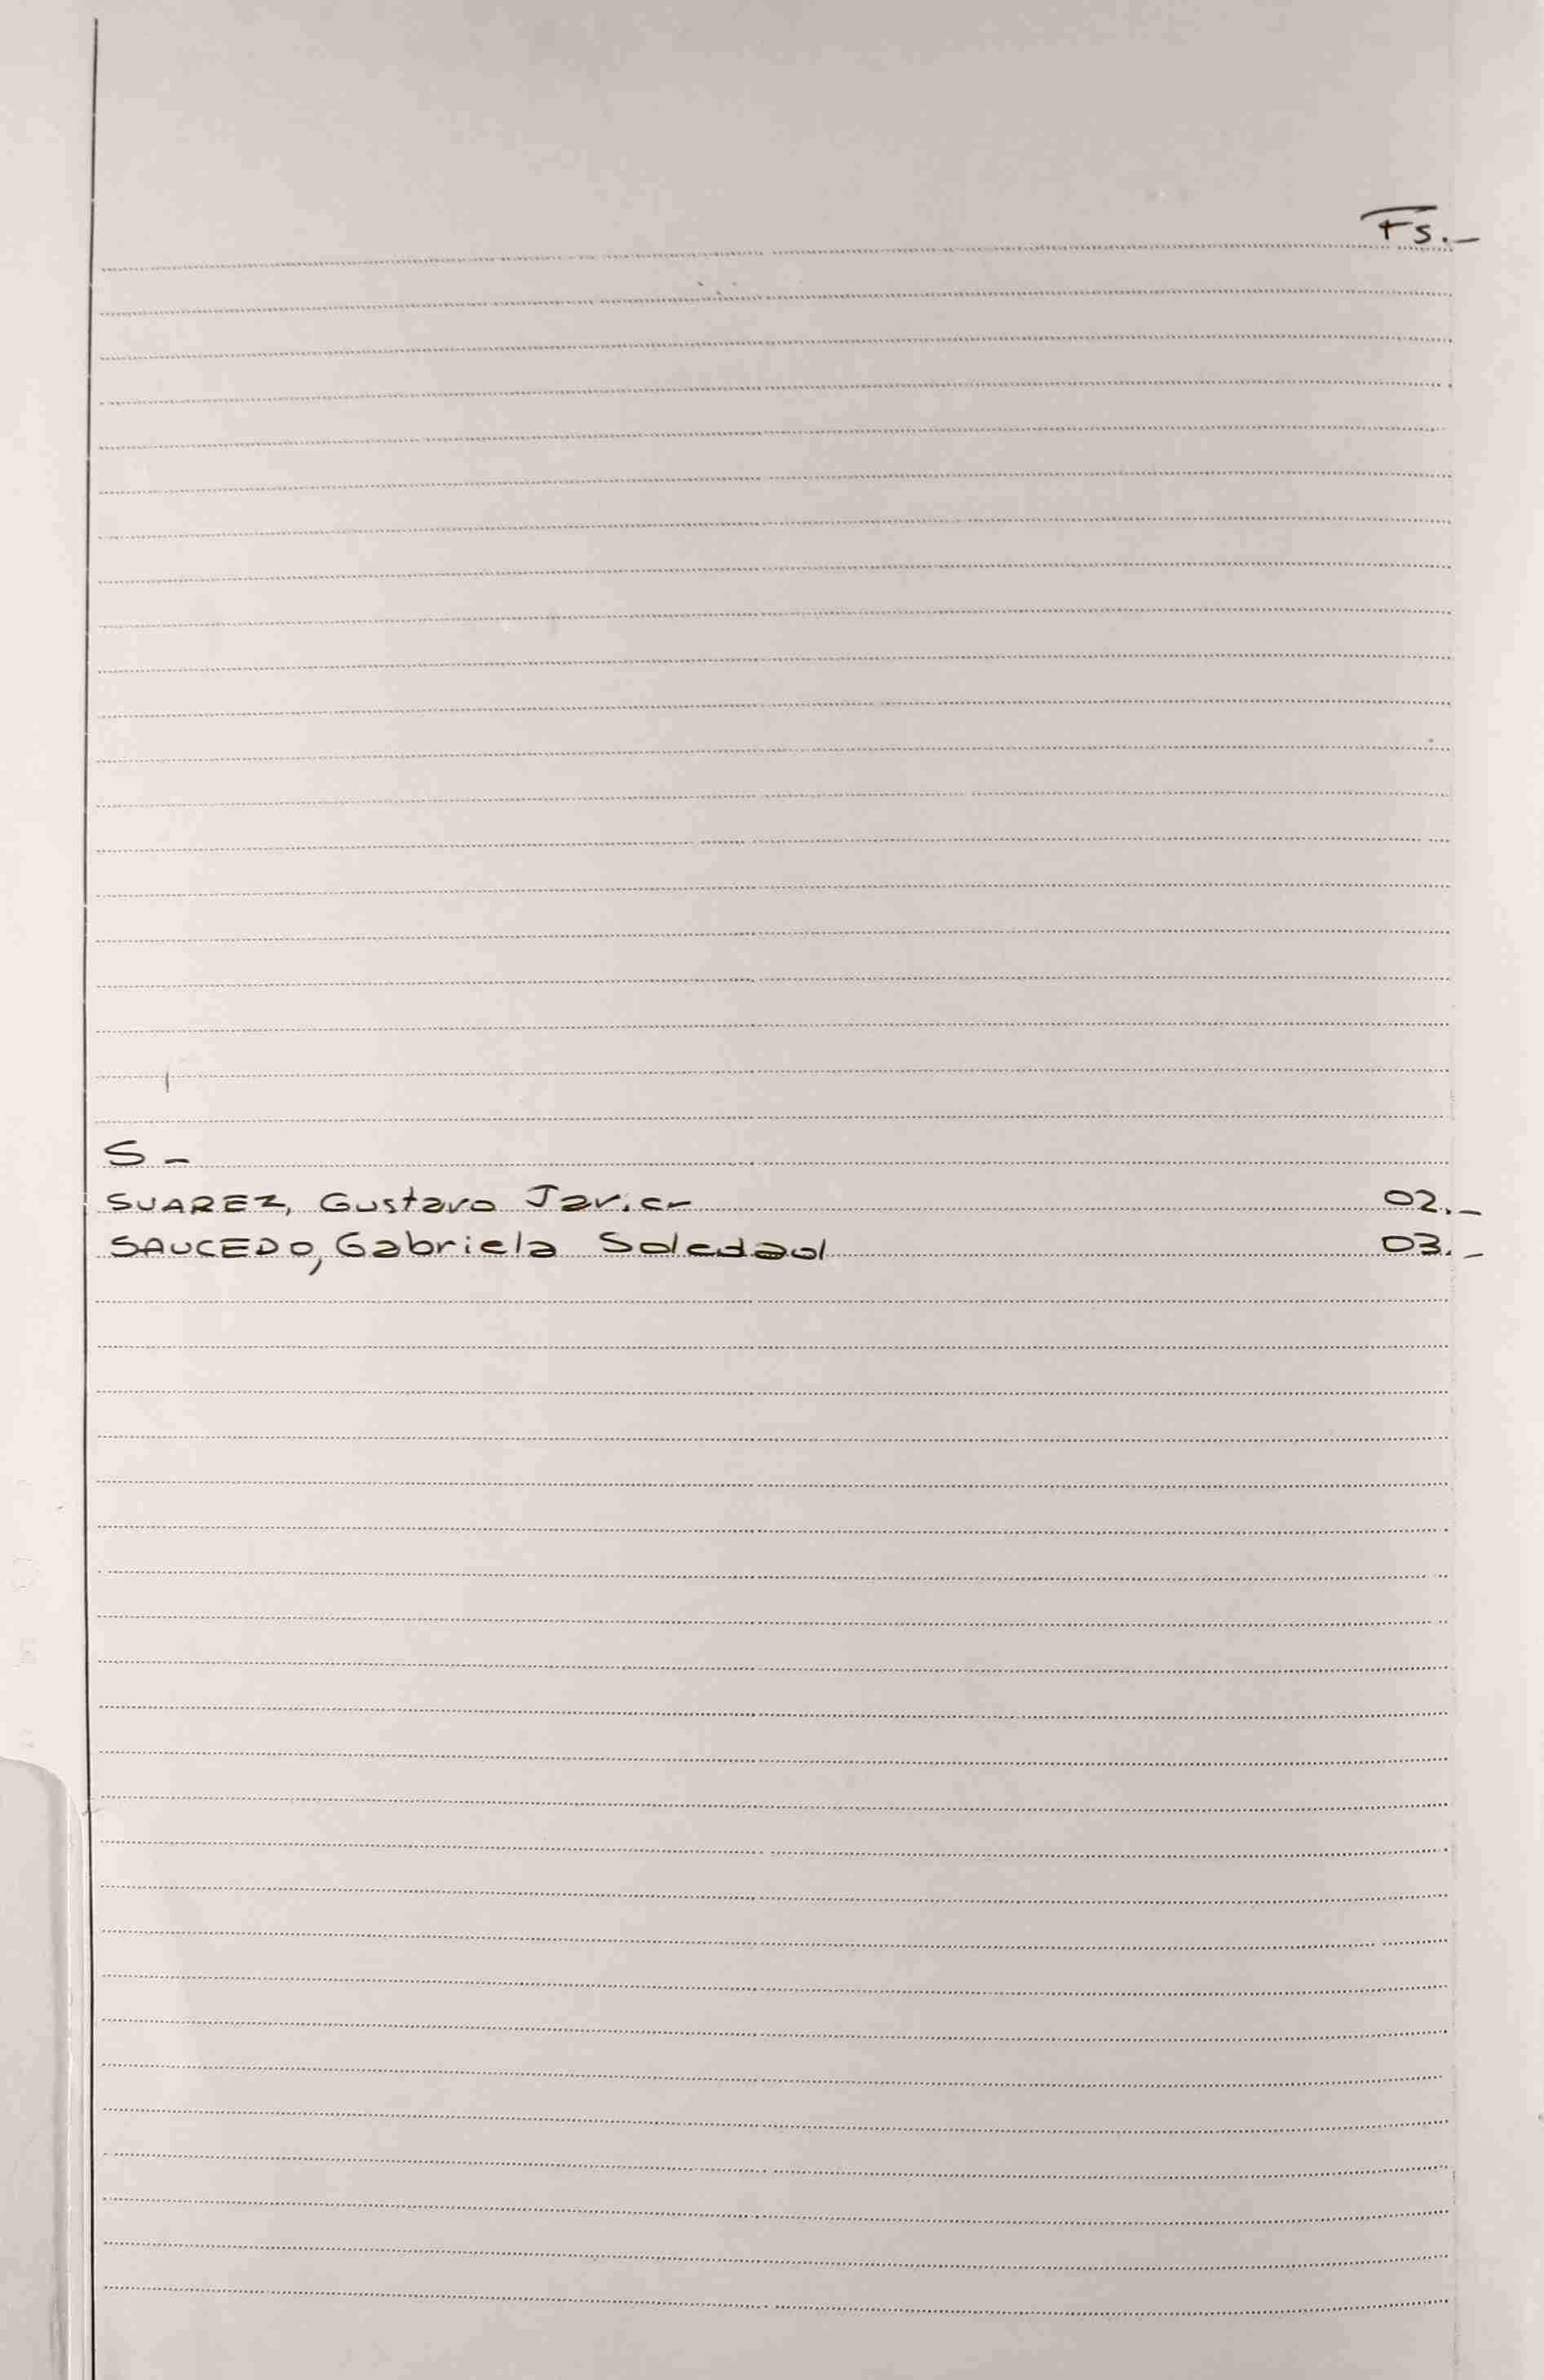 Fs.-
S -
SUAREZ, Gustavo Javier 02.-
SAUCEDO, Gabriela Soledad 03.-